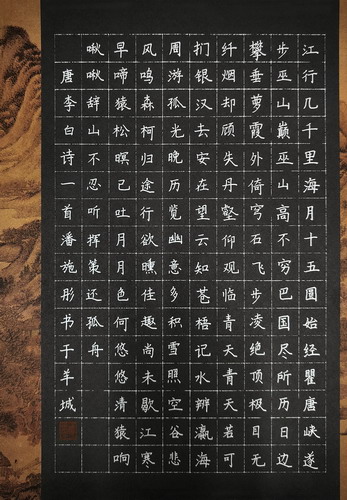 江行几千里海月十五圆始经瞿唐峡遂
步巫山巅巫山高不穷巴国尽所历日边
攀垂萝霞外倚穹石飞步凌绝顶极目无
纤烟却顾失丹壑仰观临青天青天若可
扪银汉去安在望云知苍梧记水辨瀛海
周游孤光晚历览幽意多积雪照空谷悲
风鸣森柯归途行欲曛佳趣尚未歇江寒
早啼猿松暝已吐月月色何悠悠清猿响
啾啾辞山不忍听挥策还孤舟
唐李白诗一首潘施彤书于羊城